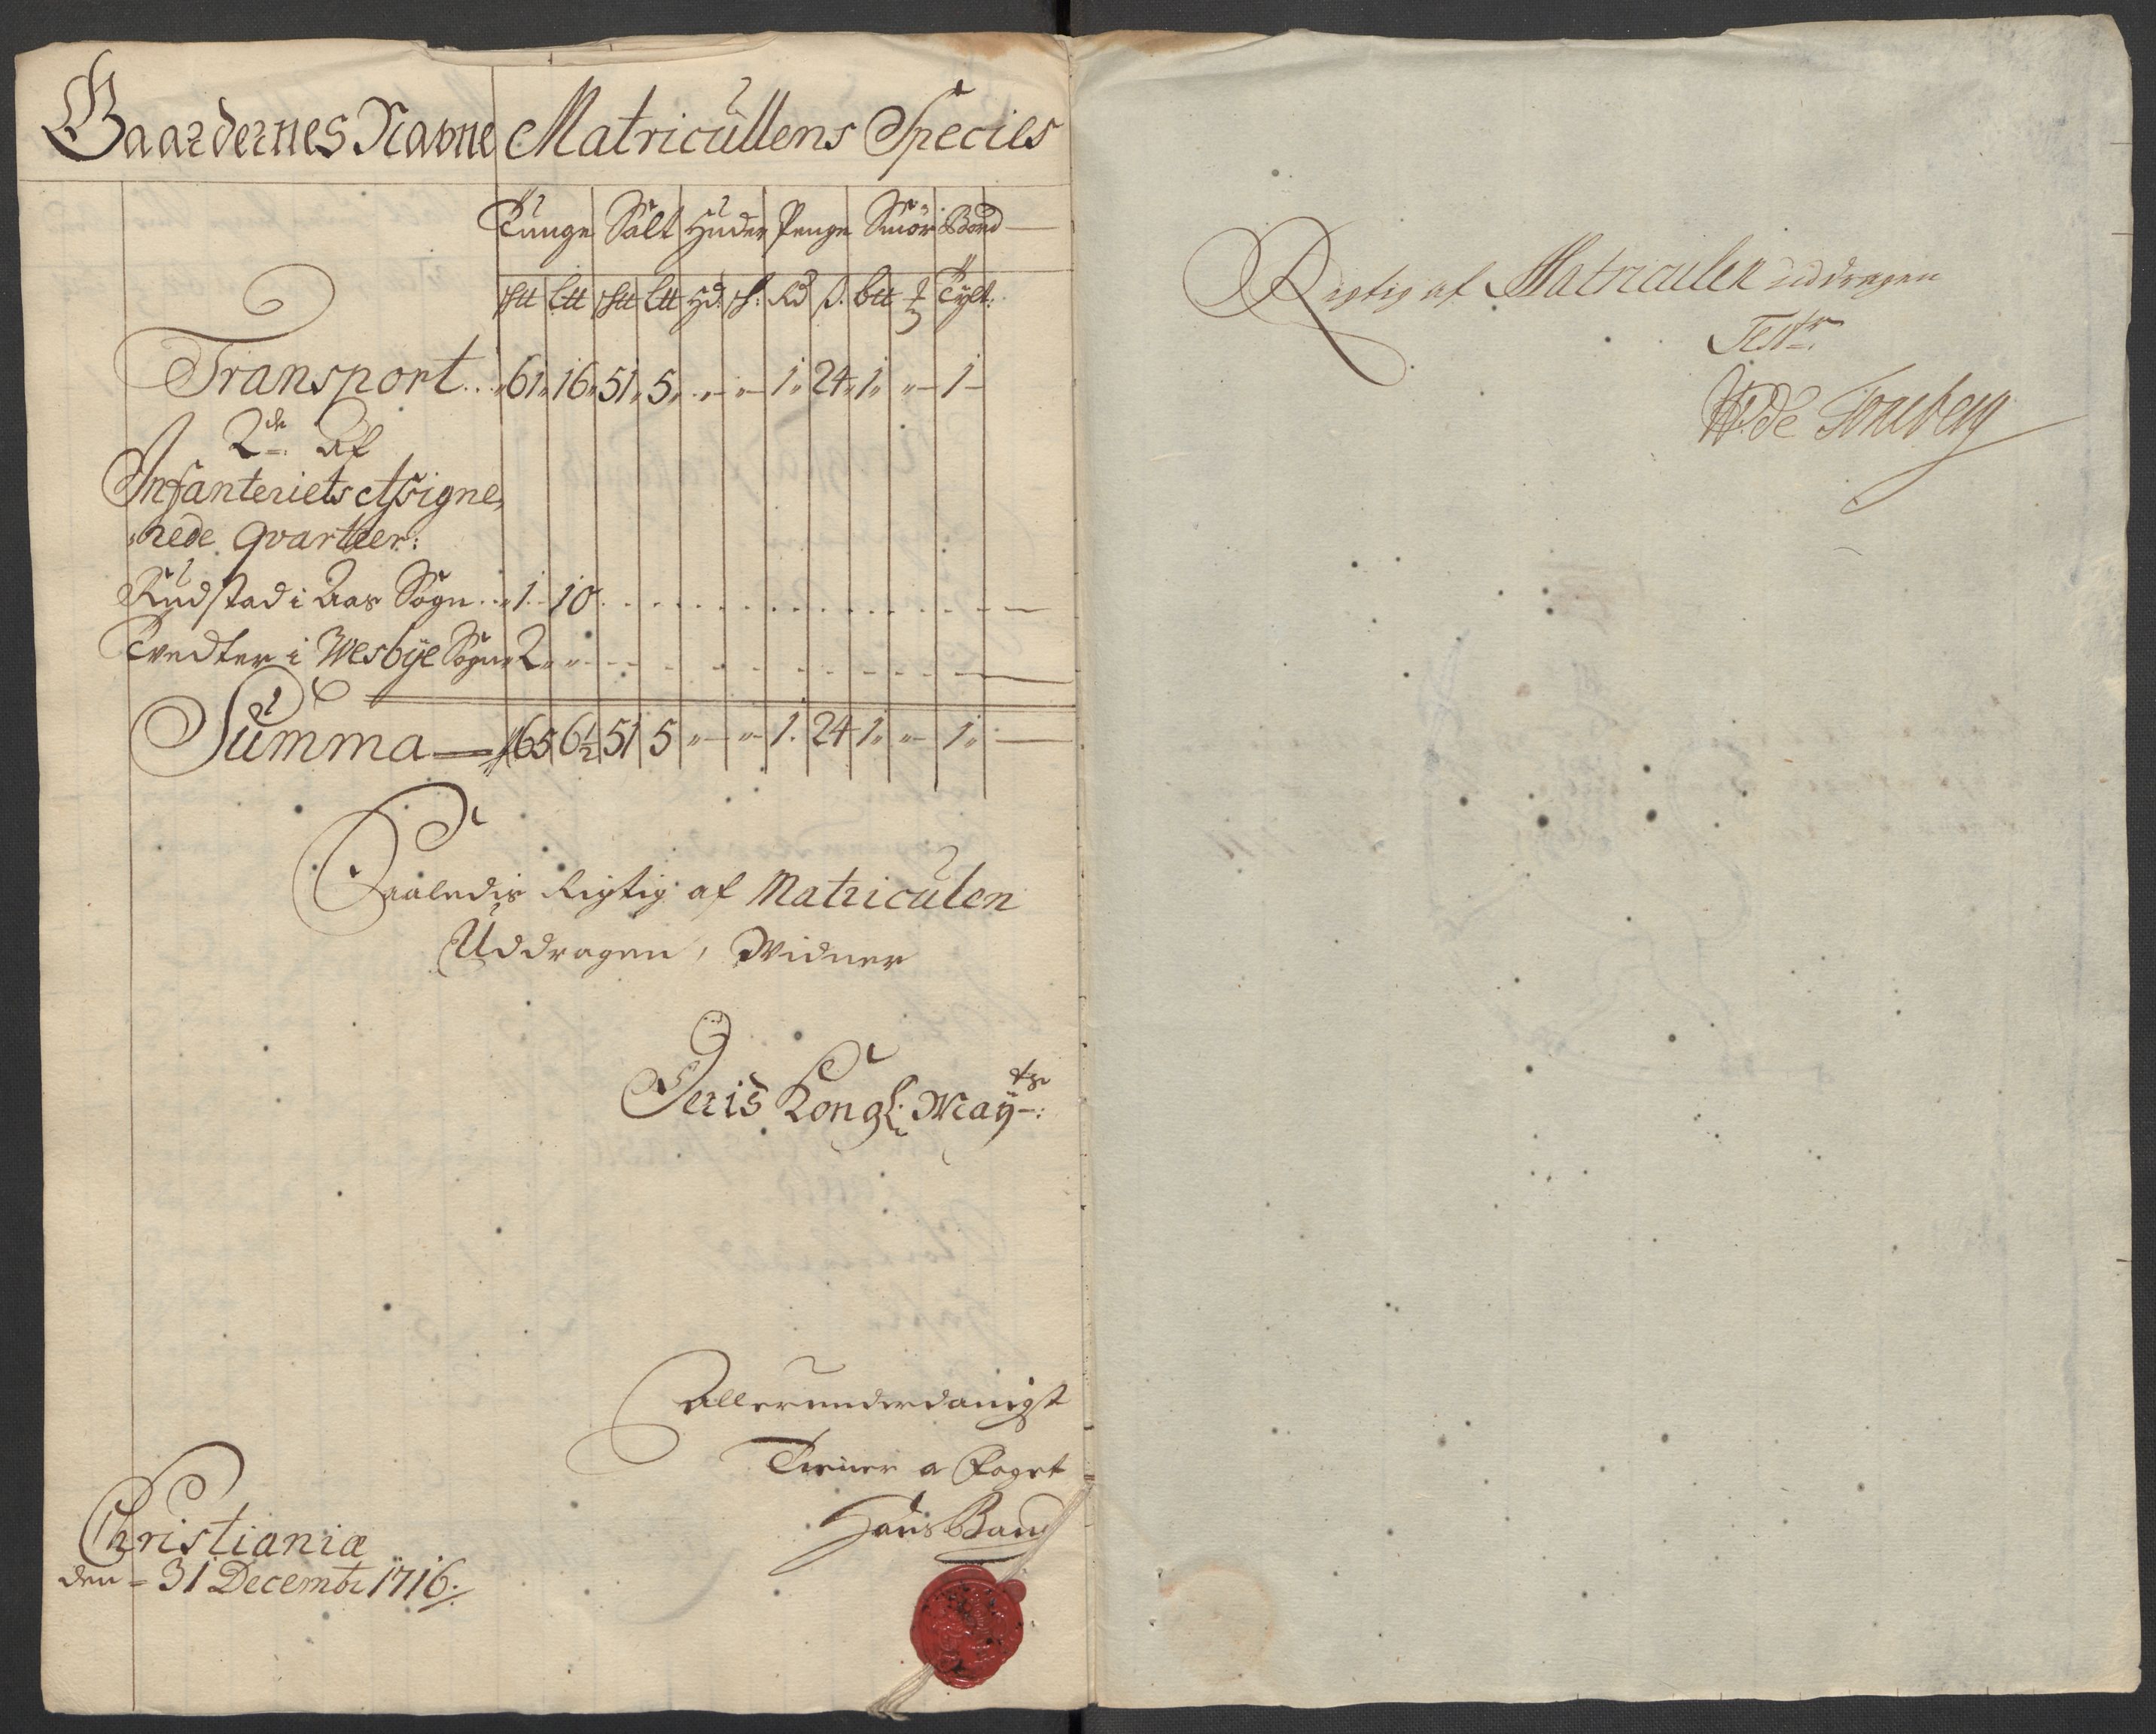 Gaardernes Navne Matricullens Species
Tunge Salt Huder Penge Smör Bord
Tylt:
Transport . . 61 16 51 5 „ „ 1 24 1 „ 1
2de Af
Infanteriets Assigne„
„rede Qvarteer:
Rudstad i Aas Sogn . . 1 10
Tvedter i Wesbÿe Sogn 2 „
Summa 65 6½ 51 5 „ „ 1. 24 1 „ 1
Saaledis Rigtig af Matriculen
Uddragen, Widner
Deris Kongl: Maÿts:
Allerunderdanigst
Tiener o Foget
Christianiæ
den 31 Decembr 1716.
Rigtig af Matriculen uddragen
Test: